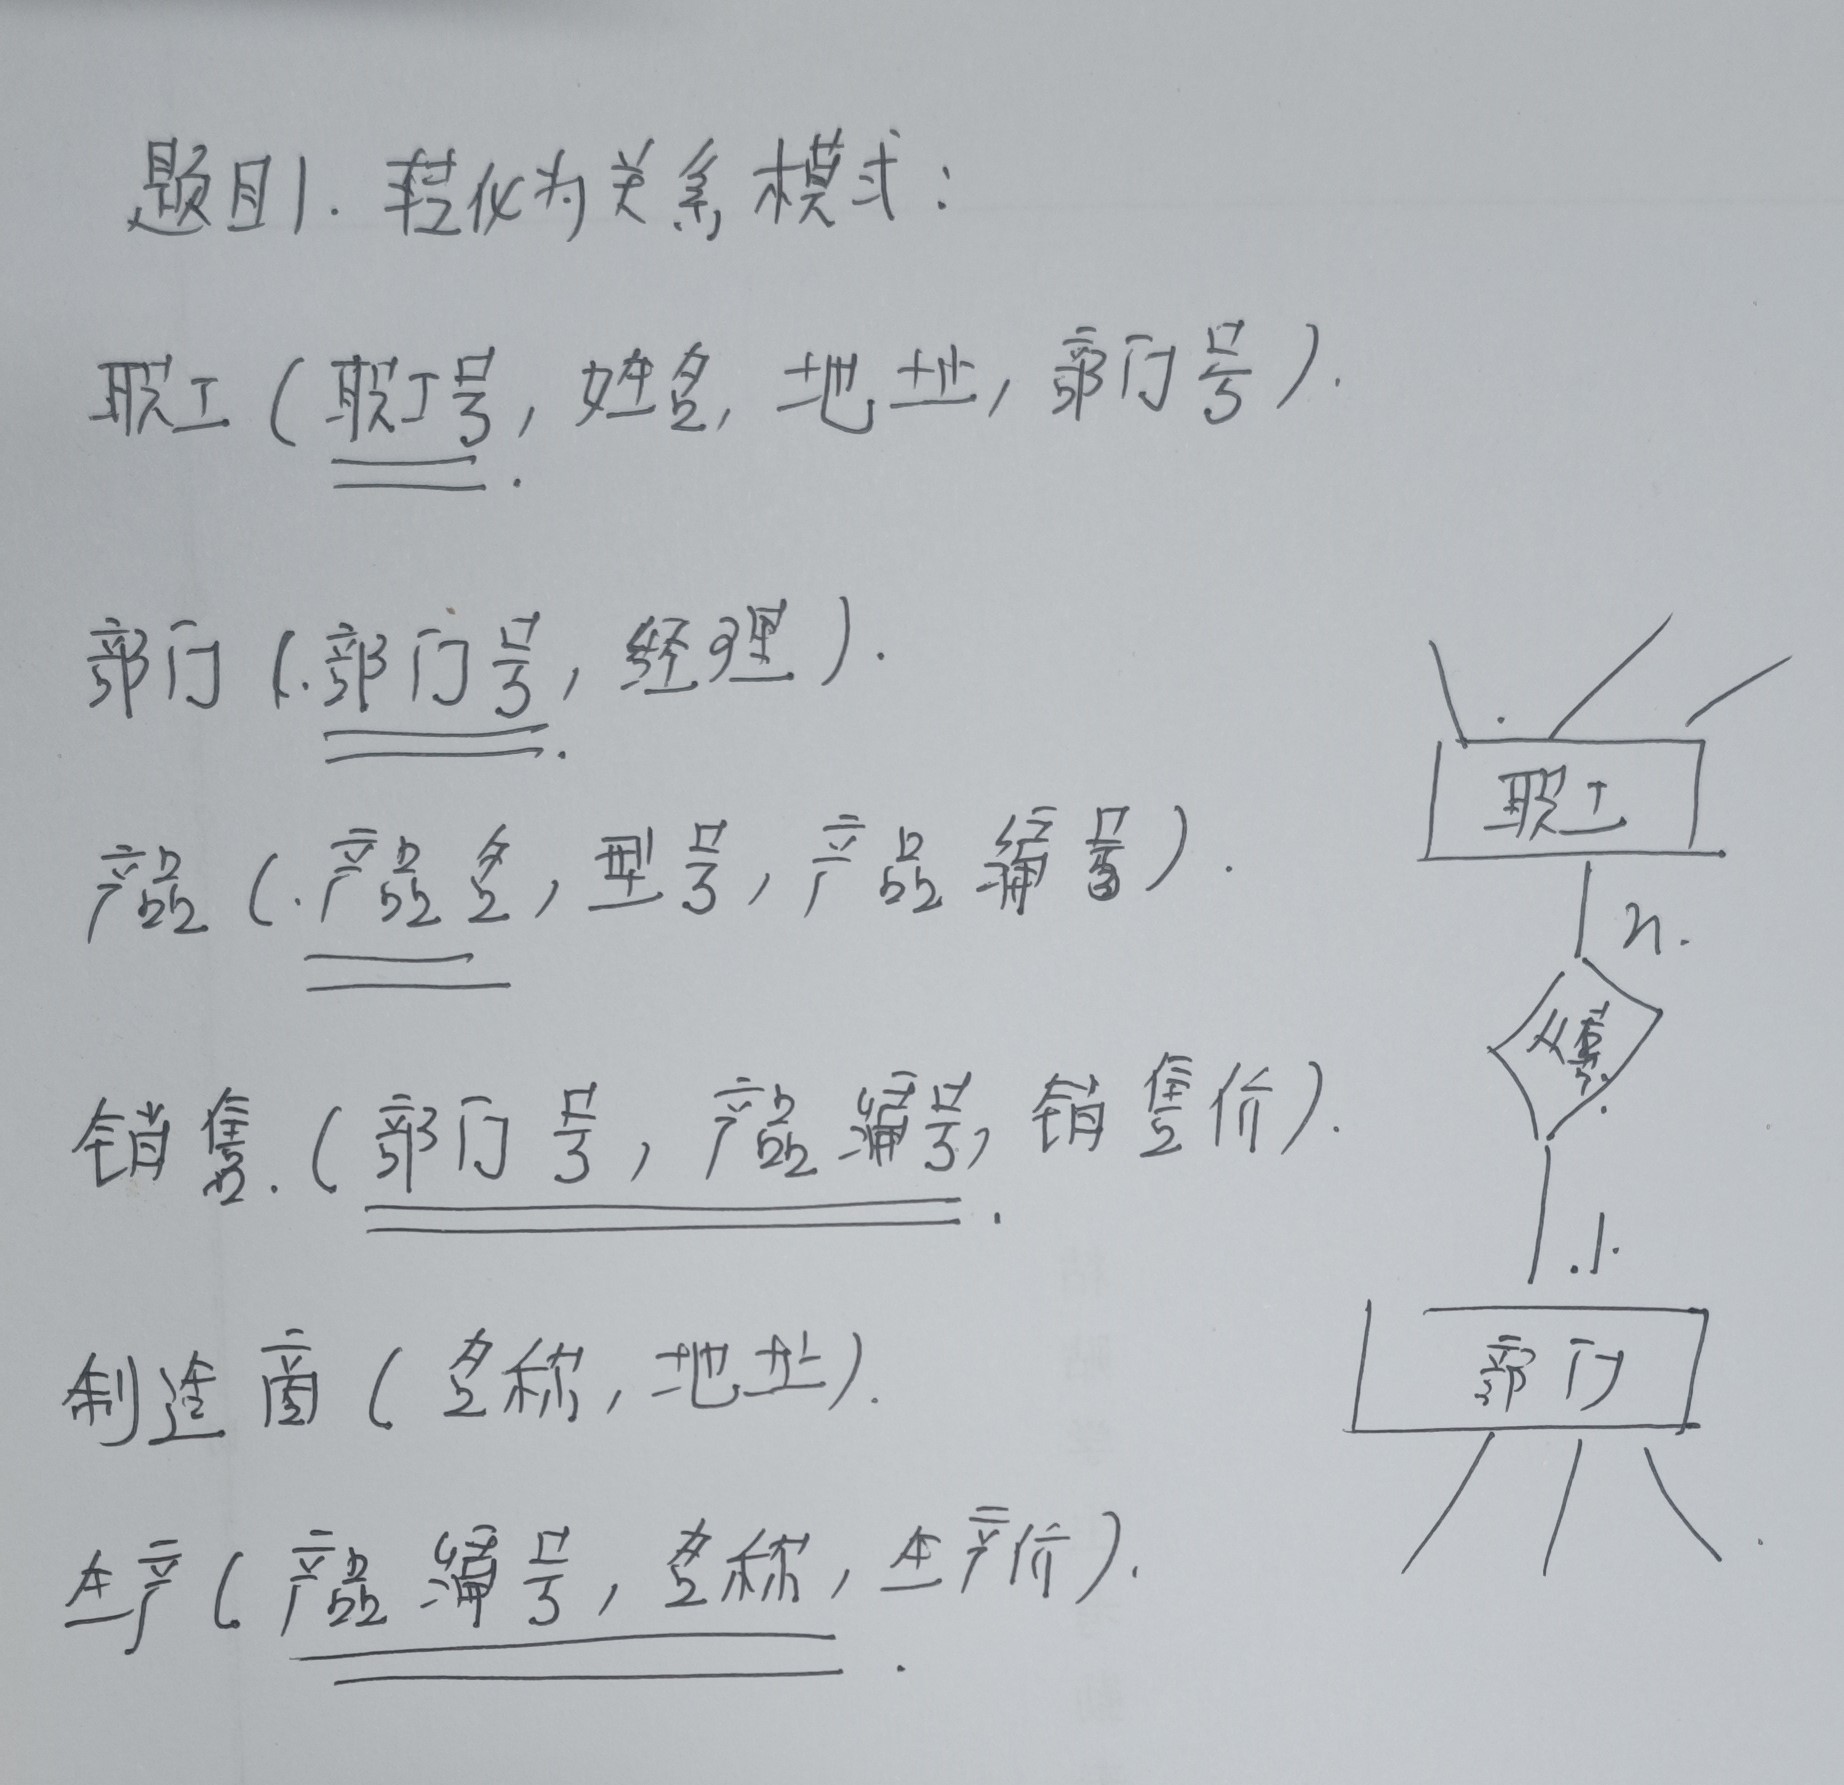 题目1. 转化为关系模式:
职工(职工号, 姓名, 地址, 部门号).
部门(部门号, 经理).
产品(产品名, 型号, 产品编号).
销售(部门号, 产品编号, 销售价).
制造商(名称, 地址).
生产(产品编号, 名称, 生产价).
职工
n.
1.
部门